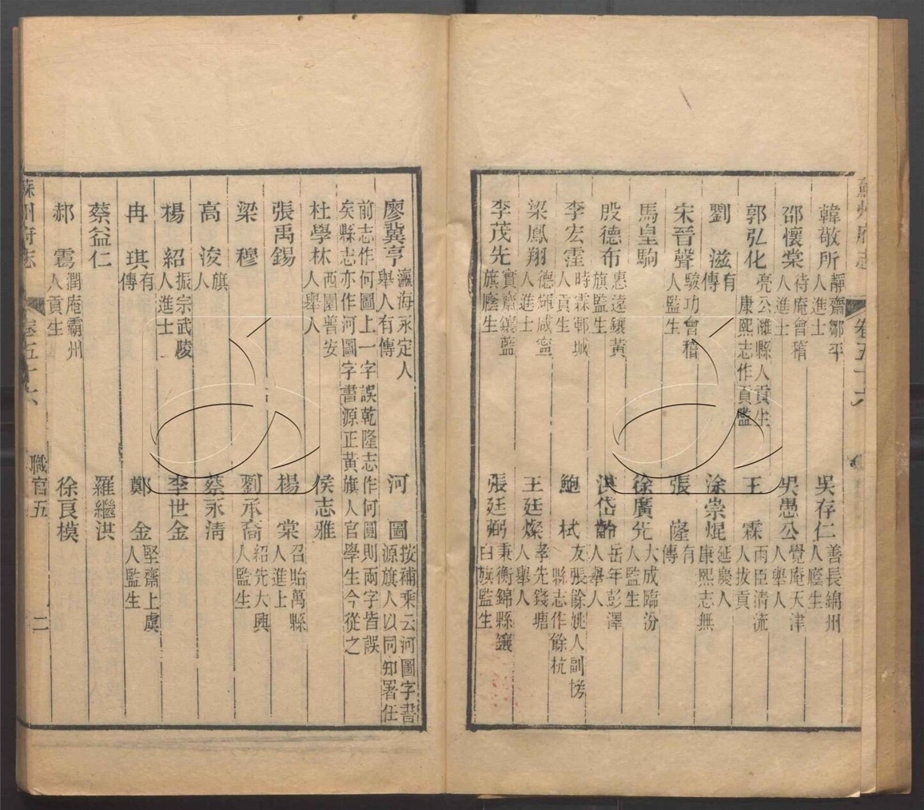 韓敬所 靜齋鄒平人進士 吳存仁 善長綿州人廕生
邵懷棠 待庵會稽人進士 吳愚公 覺庵天津人舉人
郭弘化 亮公濰縣人貢生康熙志作貢監 王霖 雨臣清流人拔貢
劉滋 有傳 涂崇焜 延慶人康熙志無
宋晉聲 駿功會稽人監生 張隆 有傳
馬皇駒 徐廣先 大成臨汾人監生
殷德布 惠遠鑲黃旗監生 洪岱齡 岳年彭澤人舉人
李宏霔 時霖鄆城人貢生 鮑栻 友張餘姚人訓導縣志作餘杭
梁鳳翔 德輝咸寧人進士 王廷燦 孝先錢塘人舉人
李茂先 實齋鑲藍旗廕生 張廷弼 秉衡錦縣鑲白旗監生
蘇州府志 卷五十六
廖冀亨 瀛海永定人舉人有傳 河圖 按補乘云河圖字書源旗人以同知署任
前志作何圖上一字誤乾隆志作何圖則兩字皆誤
矣縣志亦作河圖字書源正黃旗人官學生今從之
杜學林 西園普安人舉人 侯志雅
張禹錫 楊棠 召貽萬縣人進士
梁穆 劉承裔 紹先大興人監生
高浚 旗人 蔡永清
楊紹 振宗武陵人進士 李世金
冉琪 有傳 鄭金 堅齋上虞人監生
蔡益仁 羅繼洪
郝雲 潤庵霸州人貢生 徐良模
蘇州府志 卷五十六 職官五 二